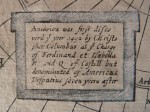 America was first disco
verd ỹ yer 1492 by Christo
pher Columbus at ỹ Charge
of Ferdinand et Isabella
K and Q of Castell but
denominated of Americus
Vesputius seven yeers after